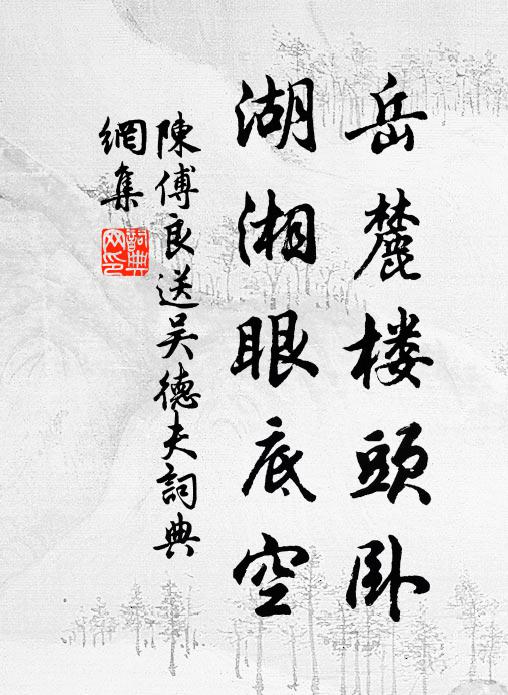 岳麓楼頭卧
湖湘眼底空
陳傅良送吴德夫詞典
網集
詞典
网印